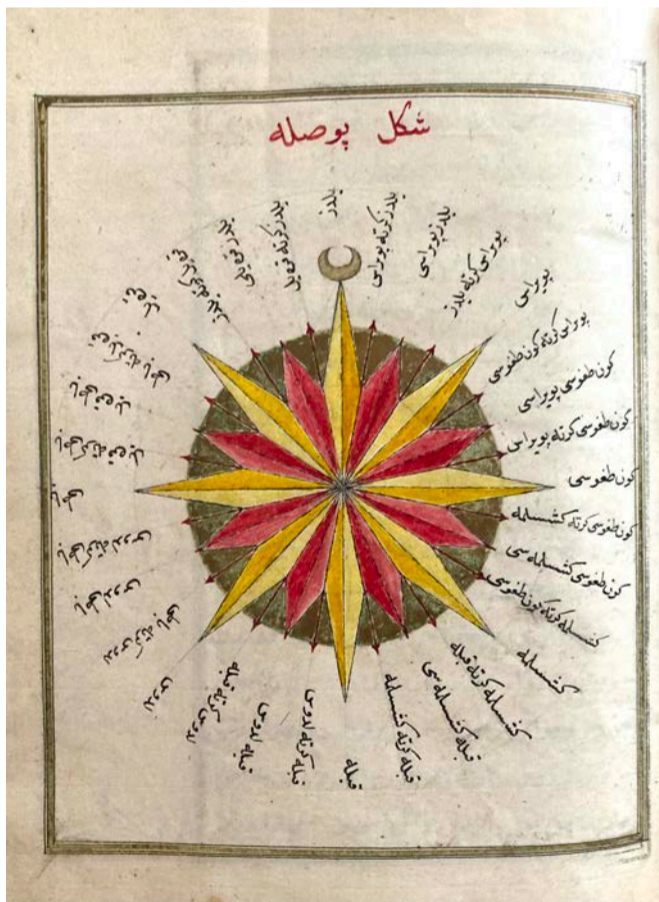 شكل پوصله
يلدز
يلدز كرته پويراس
يلدز پويراسى
پويراس كرته يلدز
پويراس
پويراس كرته كون طغوسى
كون طغوسى پويراسى
كون طغوسى كرته پويراس
كون طغوسى
كون طغوسى كرته كشسلمه
كون طغوسى كشسلمه سى
كشسلمه كرته كون طغوسى
كشسلمه
كشسلمه كرته قبله
قبله كشسلمه سى
قبله كرته كشسلمه
قبله
قبله كرته لدوس
قبله لدوسى
لدوس كرته قبله
لدوس
لدوس كرته باطى
باطى لدوسى
باطى كرته لدوس
باطى
باطى كرته قره يل
باطى قره يل
قره يل كرته باطى
قره يل
قره يل كرته يلدز
يلدز قره يلى
يلدز كرته قره يل